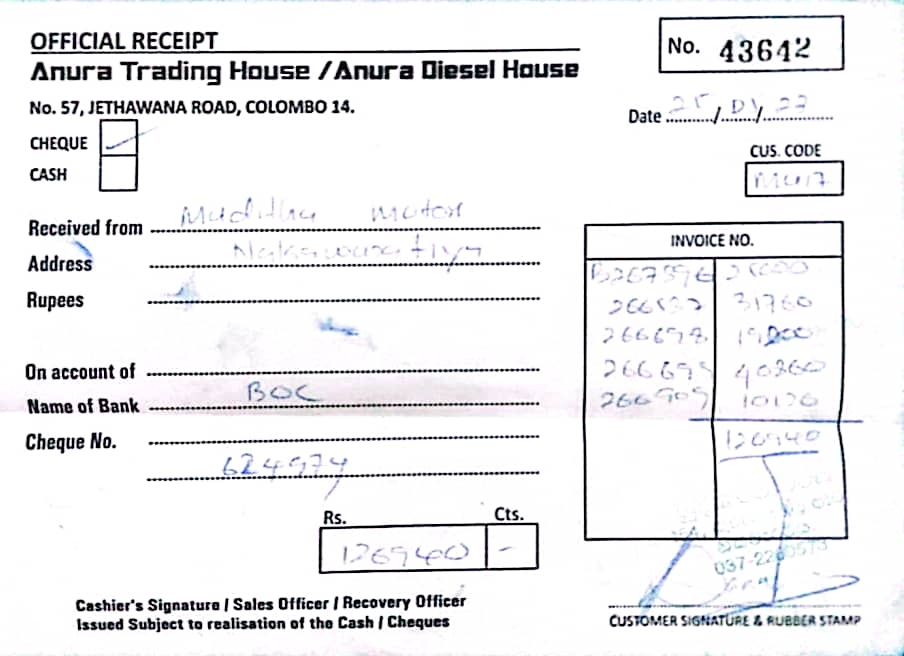 OFFICIAL RECEIPT
No. 43642
Anura Trading House / Anura Diesel House
No. 57, JETHAWANA ROAD, COLOMBO 14.
Date 25/01/22
CHEQUE ✓
CASH
CUS. CODE
MU17
Received from Muditha Motor
Address
Rupees
INVOICE NO.
31760
266698
40260
10120
126940
On account of
Name of Bank BOC
Cheque No.
624974
Rs. Cts.
126940 -
037-2260573
Cashier's Signature / Sales Officer / Recovery Officer
Issued Subject to realisation of the Cash / Cheques
CUSTOMER SIGNATURE & RUBBER STAMP